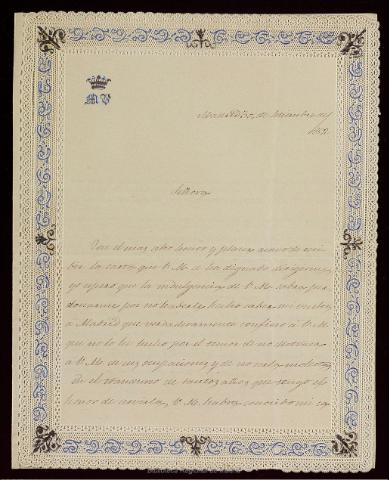 MV
Madrid 30, de
Señora
Con el mas alto honor y placer acavo de reci
bir la carta que V. M. se ha dignado dirigirme
y espero que la indulgencia de V. M. sabra per
donarme por no haberle hecho saber mi vuelta
a Madrid que verdaderamente confieso á V. M.
que no lo he hecho por el temor de no distraer
a V. M. de sus ocupaciones y de no serla molesta
En el transcurso de tantos años que tengo el
honor de servirla, V. M. habra conocido mi ca